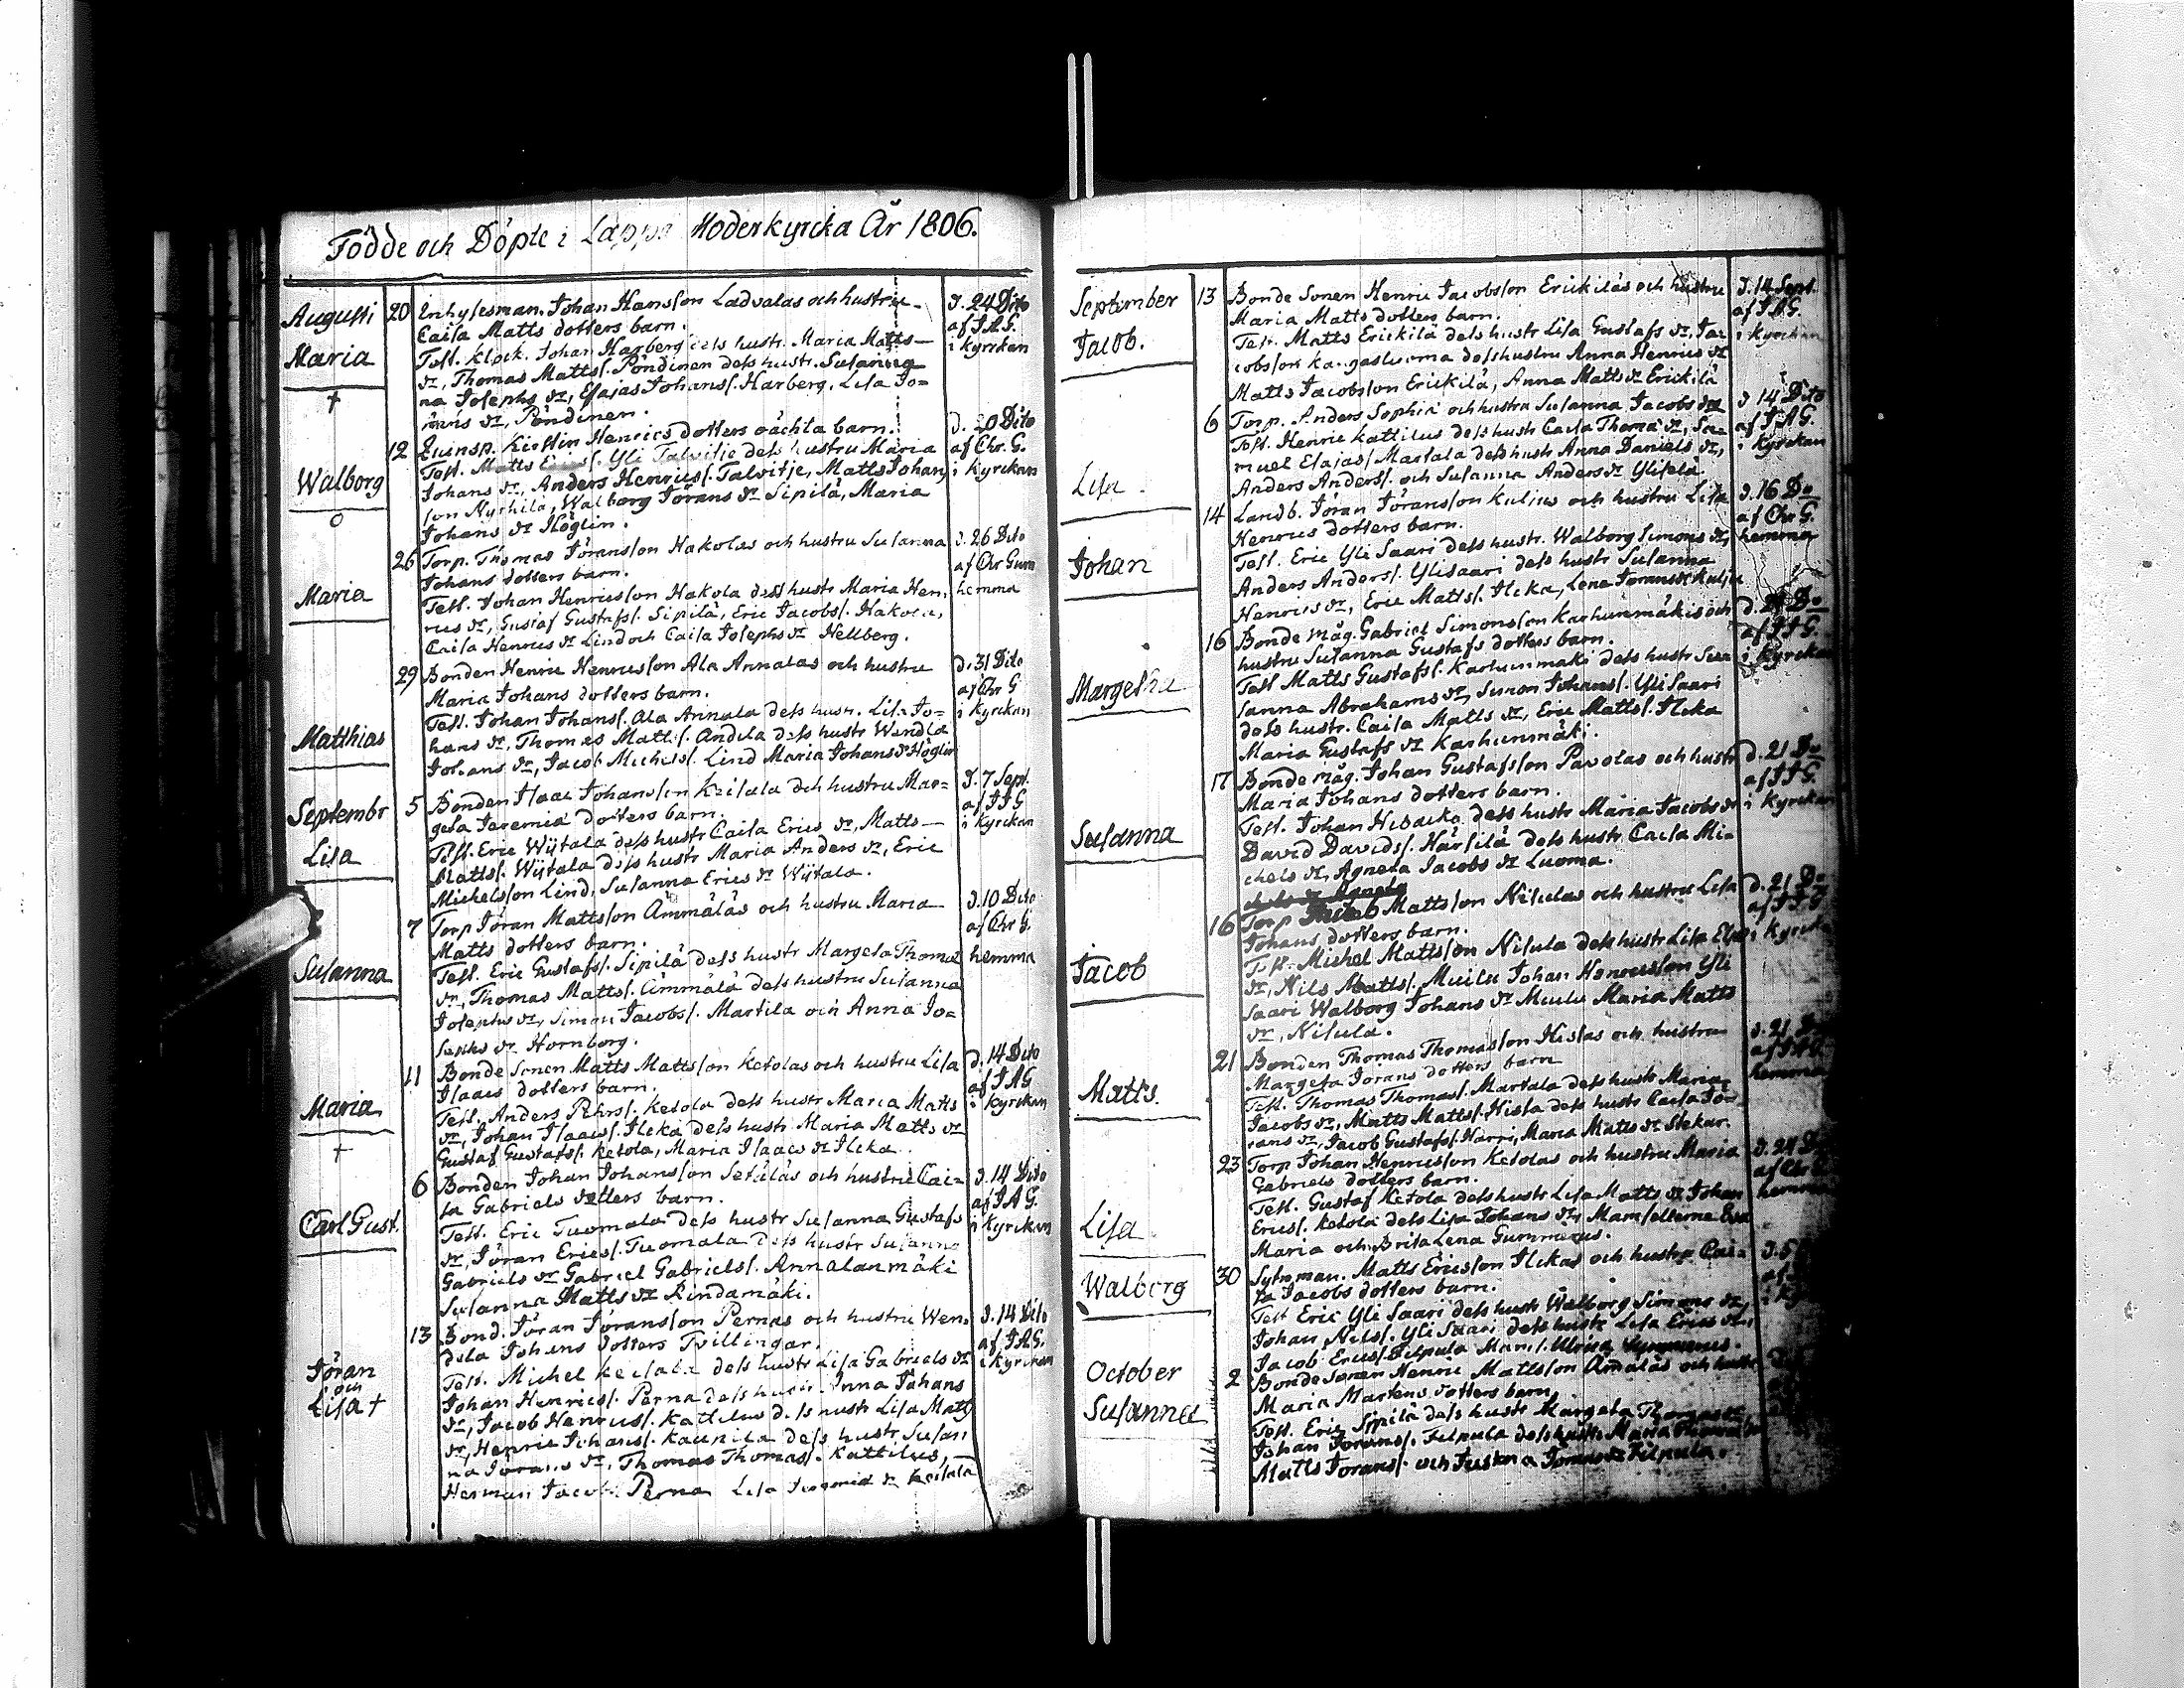 Födde och Döpte i Lappo Moderkyrcka År 1806.
Augusti 20 Inhysesman Johan Hansson Ladvalas och hustru d. 24 Dito
Caisa Matts dotters barn. af J A G.
Maria Test. Klock. Johan Harberg dess hustr. Maria Matts i Kyrckan
dr, Thomas Mattss. Pöndinen dess hustr. Susanna
† na Josephs dr, Esajas Johanss. Harberg, Lisa Jo=
dr, Pöndinen.
12 Qvinsp. Kirstin Henrics dotters oächta barn. d. 20 Dito
Test. Matts Yli Talvitje dess hustru Maria af Chr. G.
Walborg Johans dr, Anders Henricss. Talvitje, Matts Johans i Kyrckan
son Nyrhilä, Walborg Jörans dr Sipilä, Maria
Johans dr Höglin.
26 Torp. Thomas Göransson Hakolas och hustru Susanna d. 26 Dito
Johans dotters barn. af Chr Gum
Maria Test. Johan Henricsson Hakola dess hustr Maria Hen, hemma
rics dr, Gustaf Gustafss. Sipilä, Eric Jacobss. Hakola,
Caisa Henrics dr Lind och Caisa Josephs dr Hellberg.
29 Bonden Henric Henricsson Ala Annalas och hustru d. 31 Dito
Maria Johans dotters barn. af Chr G
Test. Johan Johanss. Ala Annala dess hustr. Lisa Jo= i Kyrckan
Matthias hans dr, Thomas Mattss. Andila dess hustr Wendla
Johans dr, Jacob Michelss. Lind Maria Johans dr Höglin
Septembr 5 Bonden Isaac Johansson Keisala dess hustru Mar= d. 7 Sept.
geta Jeremiæ dotters barn. af J J G
Lisa Test. Eric Wijtala dess hustr Caisa Erics dr, Matts i Kyrckan
Mattss. Wijtala dess hustr Maria Anders dr, Eric
Michelsson Lind, Susanna Erics dr Wijtala.
7 Torp Jöran Mattsson Ämmäläs och hustru Maria d. 10 Dito
Matts dotters barn. af Chr G.
Susanna Test. Eric Gustafss. Sipilä dess hustr Margeta Thomæ hemma
dr, Thomas Mattss. Ämmälä dess hustru Susanna
Josephs dr, Simon Jacobss. Martila och Anna Jo=
sephs dr Hornborg.
11 Bonde Sonen Matts Mattsson Ketolas och hustru Lisa d. 14 Dito
Isaacs dotters barn. af J A G
Maria Test. Anders Pehrss. Ketola dess hustr Maria Matts i Kyrckan
dr, Johan Isaacss. Ilcka dess hustr Maria Matts dr
† Gustaf Gustafss. Ketola, Maria Isaacs dr Ilcka.
6 Bonden Johan Johansson Setäläs och hustru Cai= d. 14 Dito
sa Gabriels dotters barn. af J A G.
Carl Gust. Test. Eric Tuomala dess hustr Susanna Gustafs i Kyrckan
dr, Jöran Ericss. Tuomala dess hustr Susanna
Gabriels dr Gabriel Gabrielss. Annalanmäki
Susanna Matts dr Rindamäki.
13 Bond. Jöran Jöransson Pernas och hustru Wen= d. 14 Dito
dela Johans dotters Tvillingar. af J A G.
Jöran Test. Michel Keisala dess hustr Lisa Gabriels dr i Kyrckan
och Johan Henricss. Perna dess hustr. Anna Johans
Lisa † dr, Jacob Henricss. Kattilus dess hustr Lisa Matts
dr, Henric Johanss. Kaunila dess hustr Susan
na Jörans dr, Thomas Thomass. Kattilus,
Herman Jacobs Perna Lisa dr Keisala
September 13 Bonde Sonen Henric Jacobsson Erickiläs och hustru d. 14 Sept.
Maria Matts dotters barn. af J A G.
Jacob. Test. Matts Erickilä dess hustr Lisa Gustafs dr, Jac i Kyrckan
obsson dess hustru Anna Henrics dr
Matts Jacobsson Erickilä, Anna Matts dr Erickilä
6 Torp. Anders Sophia och hustru Susanna Jacobs d 14 Dito
Test. Henric Kattilus dess hustr Caisa Thomæ dr, Sa= af J A G.
muel Esajass Martala dess hustr Anna Daniels dr, i Kyrckan
Lisa. Anders Anderss. och Susanna Anders dr Ylisela
14 Landb. Jöran Jöransson Kuljus och hustru Lisa d. 16 Do
Henrics dotters barn. af Chr G.
Johan Test. Eric Yli Saari dess hustr. Walborg Simons dr, hemma
Anders Anderss. Ylisaari dess hustr Susanna
Henrics dr, Eric Mattss. Ilcka, Lena Jörans dr Kulju
16 Bonde måg. Gabriel Simonsson Karhunmäkis och d. Do
hustru Susanna Gustafs dotters barn. af J J G.
Margetha Test Matts Gustafss. Karhunmäki dess hustr Su i Kyrckan
sanna Abrahams dr, Simon Johanss. Yli Saari
dess hustr. Caisa Matts dr, Eric Mattss. Ilcka
Maria Gustafs dr Karhunmäki.
17 Bonde måg. Johan Gustafsson Pavolas och hustr d. 21 Do
Maria Johans dotters barn. af J J G.
Susanna Test. Johan Hisacko dess hustr Maria Jacobs dr i Kyrckan
David Davidss. Härsilä dess hustr Caisa Mi=
chels dr, Agneta Jacobs dr Luoma.
chels dr Agneta
16 Torp Mattsson Nisulas och hustru Lisa d. 21 Do
Johans dotters barn. af J J G
Jacob Test. Michel Mattsson Nisula dess hustr Lisa i Kyrckan
dr, Nils Mattss. Muilu Johan Henricsson Yli
Saari Walborg Johans dr Muilu Maria Matts
dr, Nisula.
21 Bonden Thomas Thomasson Hislas och hustru d. 21
Margeta Jörans dotters barn af J A G.
Matts. Test. Thomas Thomass. Martala dess hustr Maria hemma
Jacobs dr, Matts Mattss. Hisla dess hustr Caisa Jö=
rans dr, Jacob Gustafss. Harri, Maria Matts dr Slekar.
23 Torp Johan Henricsson Ketolas och hustru Maria d. 24
Gabriels dotters barn. af Chr
Test. Gustaf Ketola dess hustr Lisa Matts dr Johan hemma
Lisa Ericss. Ketola dess Lisa Johans dr, Mamsellerne Eva
Maria och Brita Lena Gummerus.
Walborg 30 Sytnman. Matts Ericsson Ilckas och hustru Cai=
sa Jacobs dotters barn.
Test Eric Yli Saari dess hustr Walborg Simons dr,
Johan Nilss. Yli Saari dess hustr Lisa Erics dr,
Jacob Ericss. Filpula Mams. Ulrica Gummerus.
October 2 Bonde Sonen Henric Mattsson Andiläs och hustr
Maria Martens dotters barn,
Susanna Test. Eric Sipilä dess hustr Margeta Thomæ dr
Johan Joranss. Filpula dess hustr Maria
Matts Joranss. och Jörans dr Filpula.